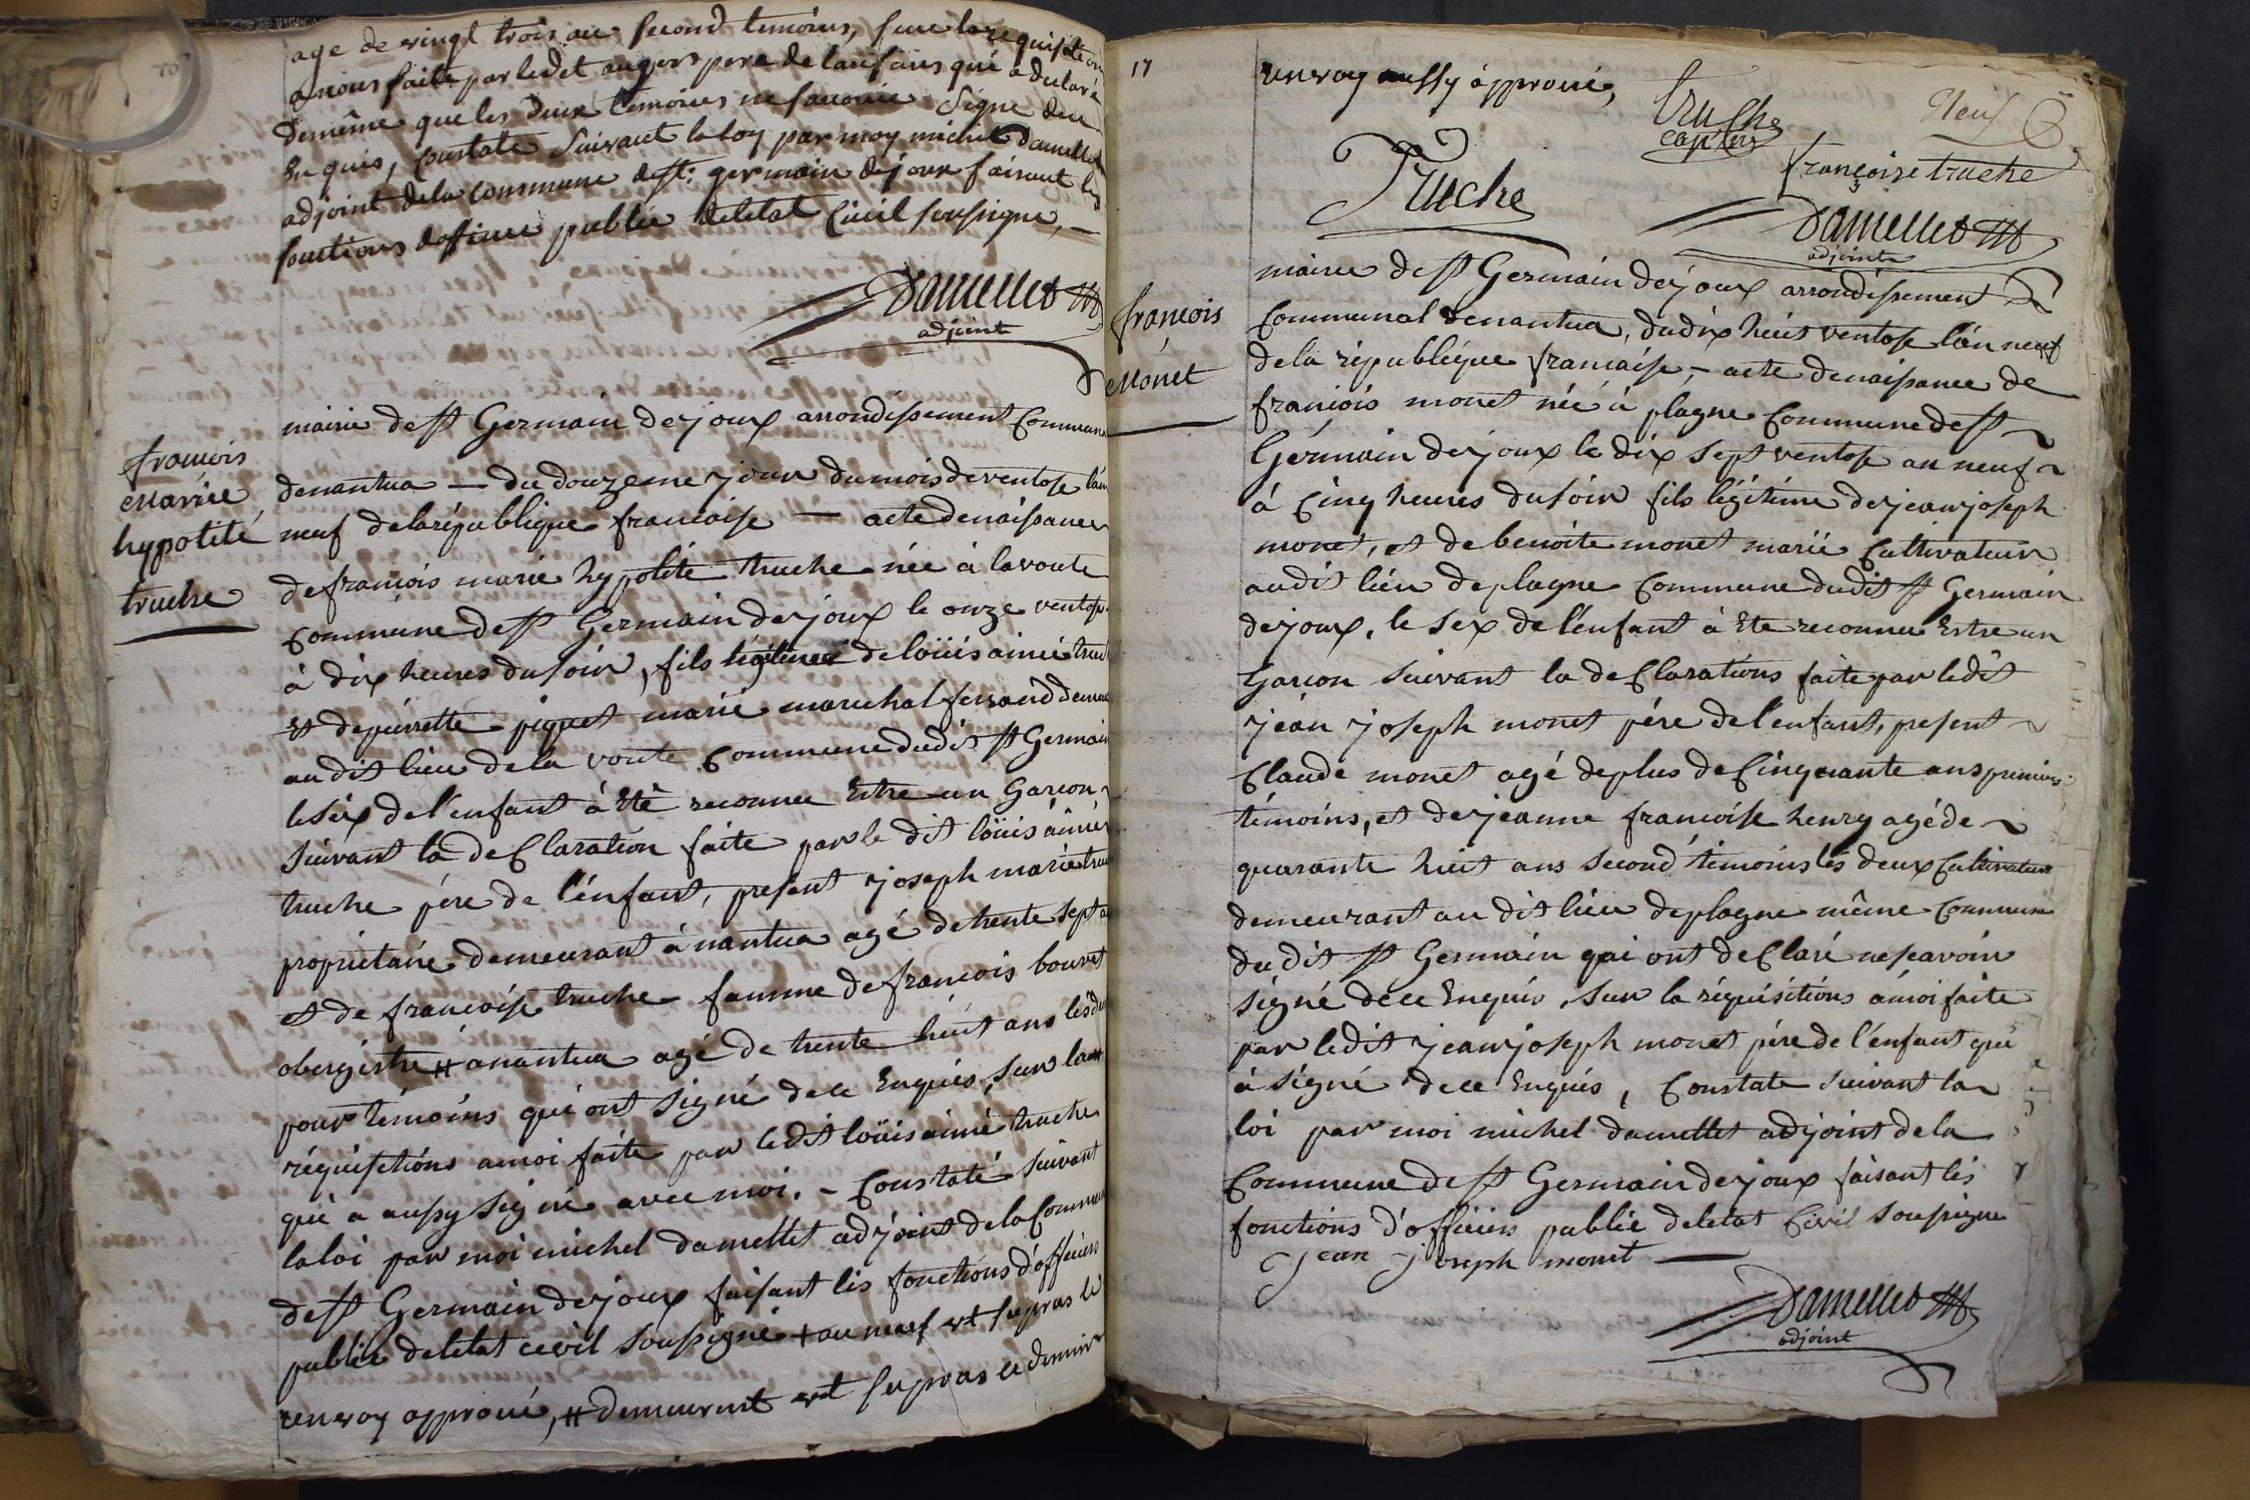 age de vingt trois ans second temoins, sur la requisition
a nous faite par ledit augers pere de lanfans qui a declaré
de même que les deux temoins ne savoire signe de ce
enquis, constate suivant la loy par moy michel damellet
adjoint de la commune de st: germain de joux faisant les
fonctions dofficier public de letat civil soussigne, —
Damellet
adjoint
françois
Marie
hypolité
truche
mairie de St Germain de joux arrondissement Communal
denantua — du douzeme jour du mois de ventose l'an
neuf de la république francaise — acte de naissance
de francois marie hypolité truche née à la voute
commune de St Germain de joux le onze ventose
à dix heures du soir, fils légitime de loüis aimé truche
et de pierrette piquet marié marechal ferrand demeurant
au dit lieu de la voute commune du dit St Germain
le sex de l'enfant à été reconnu Estre un Garcon
suivant la deClaration faite par le dit loüis aimé
truche pére de l'énfant, present joseph marie truche
propriétaire demeurant à nantua agé de trente sept ans
et de francoise truche famme de francois bouvet
obergistre # anantua agé de trente huit ans les deux
pour témoins qui ont signé de ce Enquis, sur la
réquisitions amoi faite par ledit loüis aimé truche
qui a aussy signé avec moi. – Constaté suivant
la loi par moi michel damellet adjoint de la Commune
de St Germain de joux faisant les fonctions d'officiers
public de letat civil soussigné + an neuf et supras le
renvoy approuvé, # demeurent et supras le dernier
17
renvoy aussy approuvé,
Neuf
truche
Truche
françoise truche
Damellet
adjoint
françois
Monet
mairie de St Germain de joux arrondissement
Communal denantua, du dix huit ventose l'an neuf
de la république francaise, – acte de naissance de
françois monet née à plagne Commune de St
Germain de joux le dix sept ventose an neuf
à Cinq heures du soir fils légitime de jean joseph
monet, et de benoite monet marié Cultivateur
au dit lieu de plagne Commune du dit St Germain
de joux, le sex de l'enfant à Eté reconnu Estre un
Garcon suivant la deClarations faite par ledit
jean joseph monet pére de l'enfant, present
Claude monet agé de plus de Cinquante ans premiers
témoins, et de jeanne francoise henry agé de
quarante huit ans second témoins les deux Cultivateurs
demeurant au dit lieu de plagne même Commune
du dit St Germain qui ont deClaré ne savoir
signé de ce Enquis, sur la réquisitions à moi faite
par ledit jean joseph monet pére de l'énfant qui
à signé de ce Enquis, Constate suivant la
loi par moi michel damellet adjoint de la
Commune de St Germain de joux faisant les
fonctions d'officiers public de letat Civil soussigne
jean joseph monet —
Damellet
adjoint